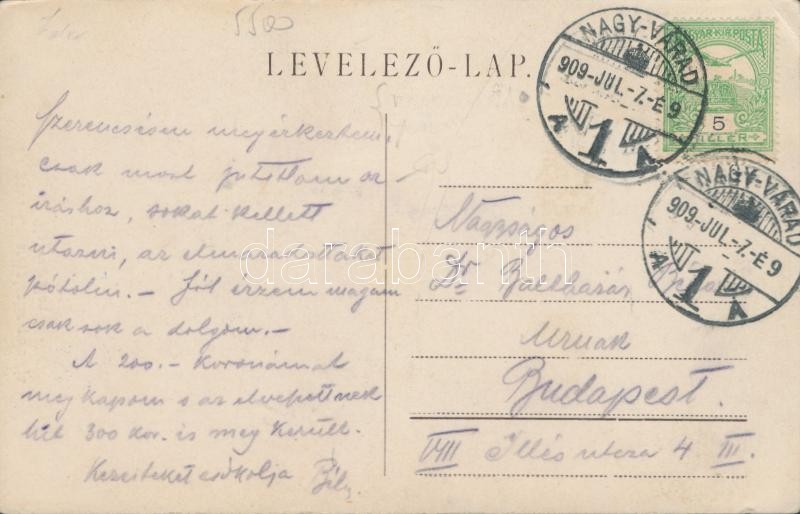 5500
LEVELEZŐ-LAP.
NAGY-VÁRAD
909-JUL.-7.-É9
A 1 A
MAGYAR KIR. POSTA
5
FILLÉR
NAGY-VÁRAD
909-JUL.-7.-É9
A 1 A
Szerencsésen megérkeztem,
csak most jutottam az
íráshoz, sokat kellett
utazni, az elmaradottakat
pótolni. — Jól érzem magam
csak sok a dolgom. —
A 200. — koronámat
megkapom s az elveszettnek
hitt 300 kor. is meg került.
Kezeiteket csókolja Béla
Nagyságos
Dr. Balthazár
Urnak
Budapest.
VIII Illés utcza 4 III.
darabanth